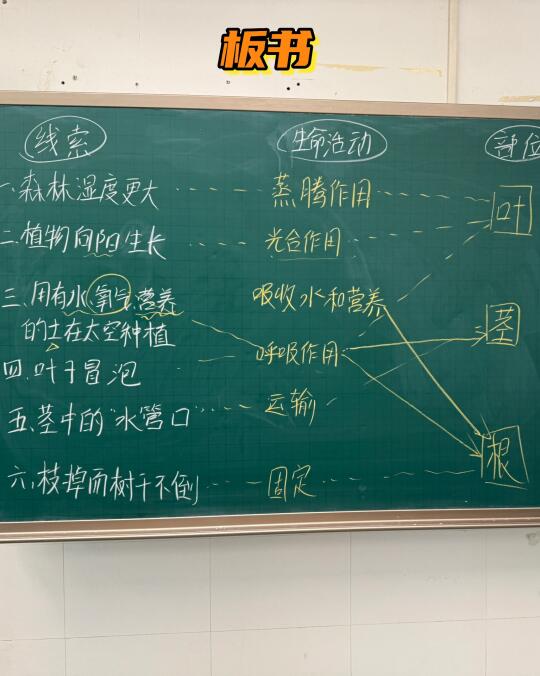 板书
线索 生命活动 部位
一.森林湿度更大 蒸腾作用 叶
二.植物向阳生长 光合作用
三.用有水、氧气、营养 吸收水和营养
的土在太空种植 茎
四.叶子冒泡 呼吸作用
五.茎中的"水管口" 运输
根
六,枝掉而树干不倒 固定